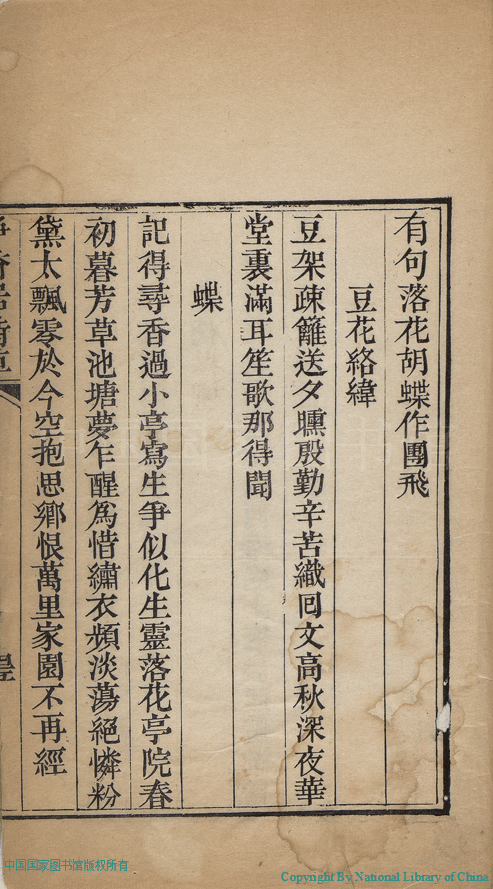 有句落花胡蝶作團飛
豆花絡緯
豆架疎籬送夕曛殷勤辛苦織回文高秋深夜華
堂裏滿耳笙歌那得聞
蝶
記得尋香過小亭寫生爭似化生靈落花亭院春
初暮芳草池塘夢乍醒爲惜繡衣頻淡蕩絕憐粉
黛太飄零於今空抱思鄉恨萬里家園不再經
中国国家图书馆版权所有
Copyright By National Library of China